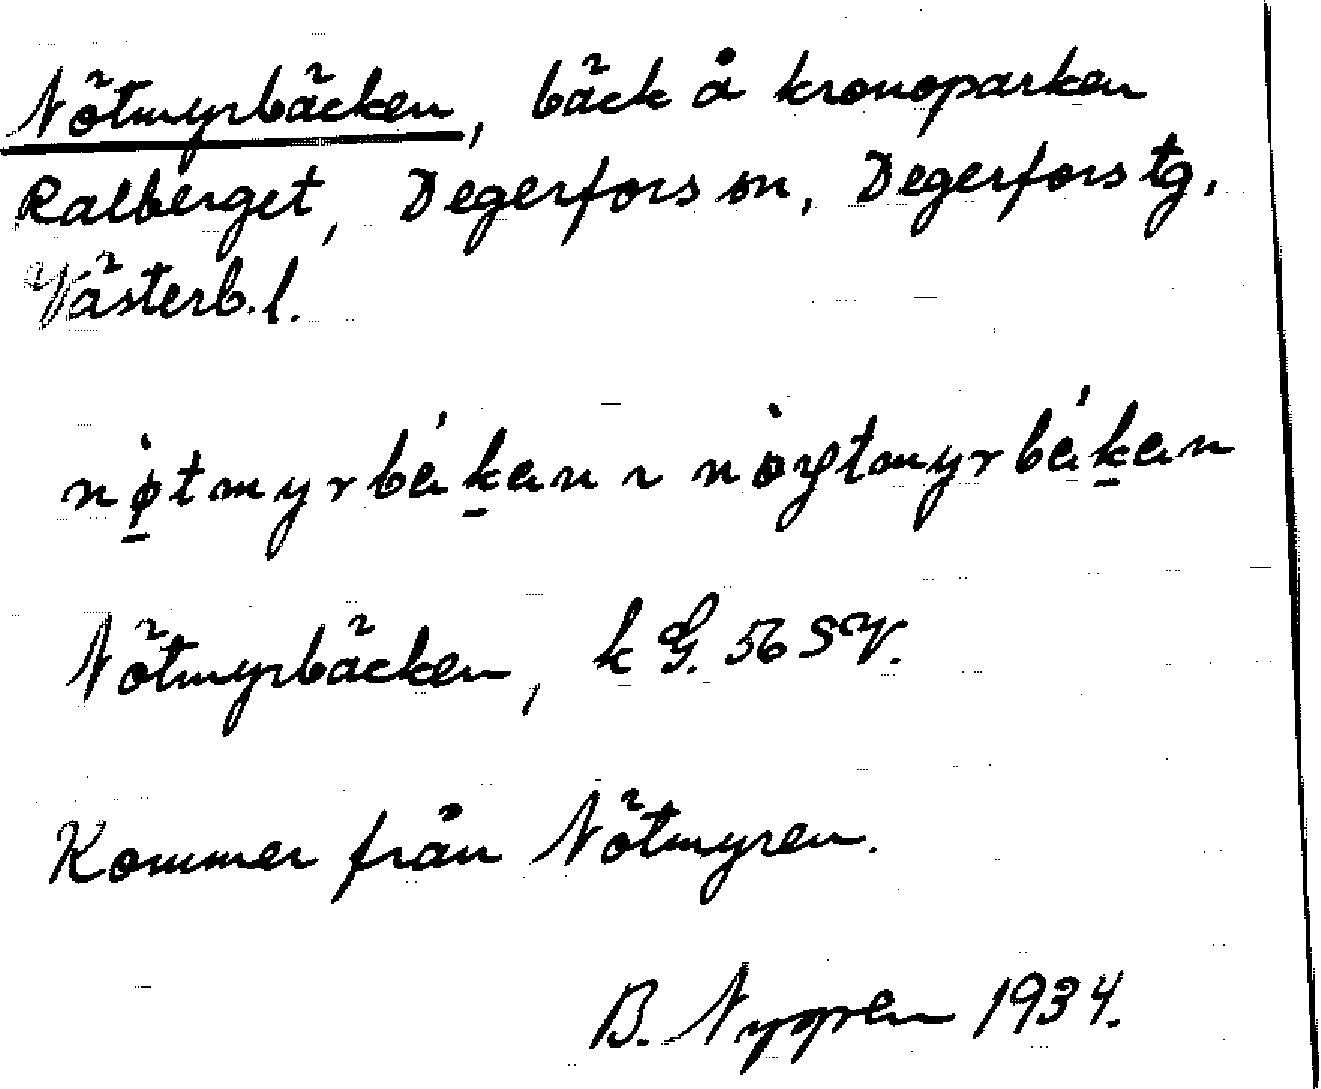 Nötmyrbäcken, bäck å kronoparken
Ralberget, Degerfors sn, Degerfors tg.
Västerb.l.
nø̀tmyrbékan ~ nòytmyrbékan
Nötmyrbäcken, k G. 56 SV.
Kommer från Nötmyren.
B. Nygren 1934.